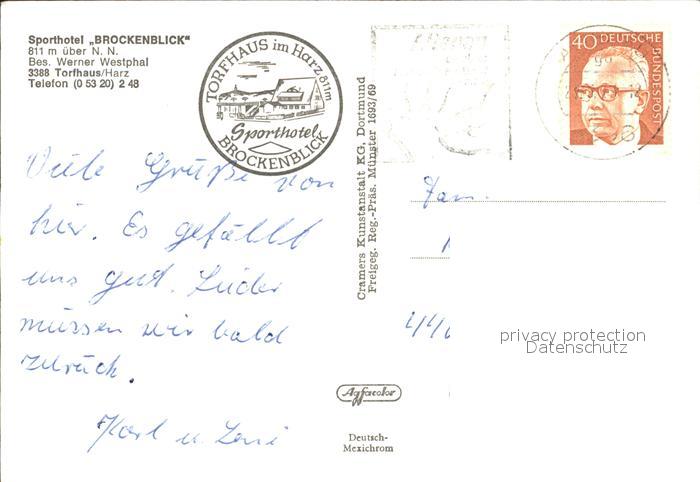 Sporthotel „BROCKENBLICK“
811 m über N. N.
Bes. Werner Westphal
3388 Torfhaus/Harz
Telefon (0 53 20) 2 48
TORFHAUS im Harz 811m
Sporthotel
BROCKENBLICK
40 DEUTSCHE
BUNDESPOST
Viele Grüße von
hier. Es gefällt
uns gut. Leider
müssen wir bald
zurück.
Karl u. Leni
Cramers Kunstanstalt KG, Dortmund
Freigeg. Reg.-Präs. Münster 1693/69
Fam.
privacy protection
Datenschutz
Agfacolor
Deutsch-
Mexichrom